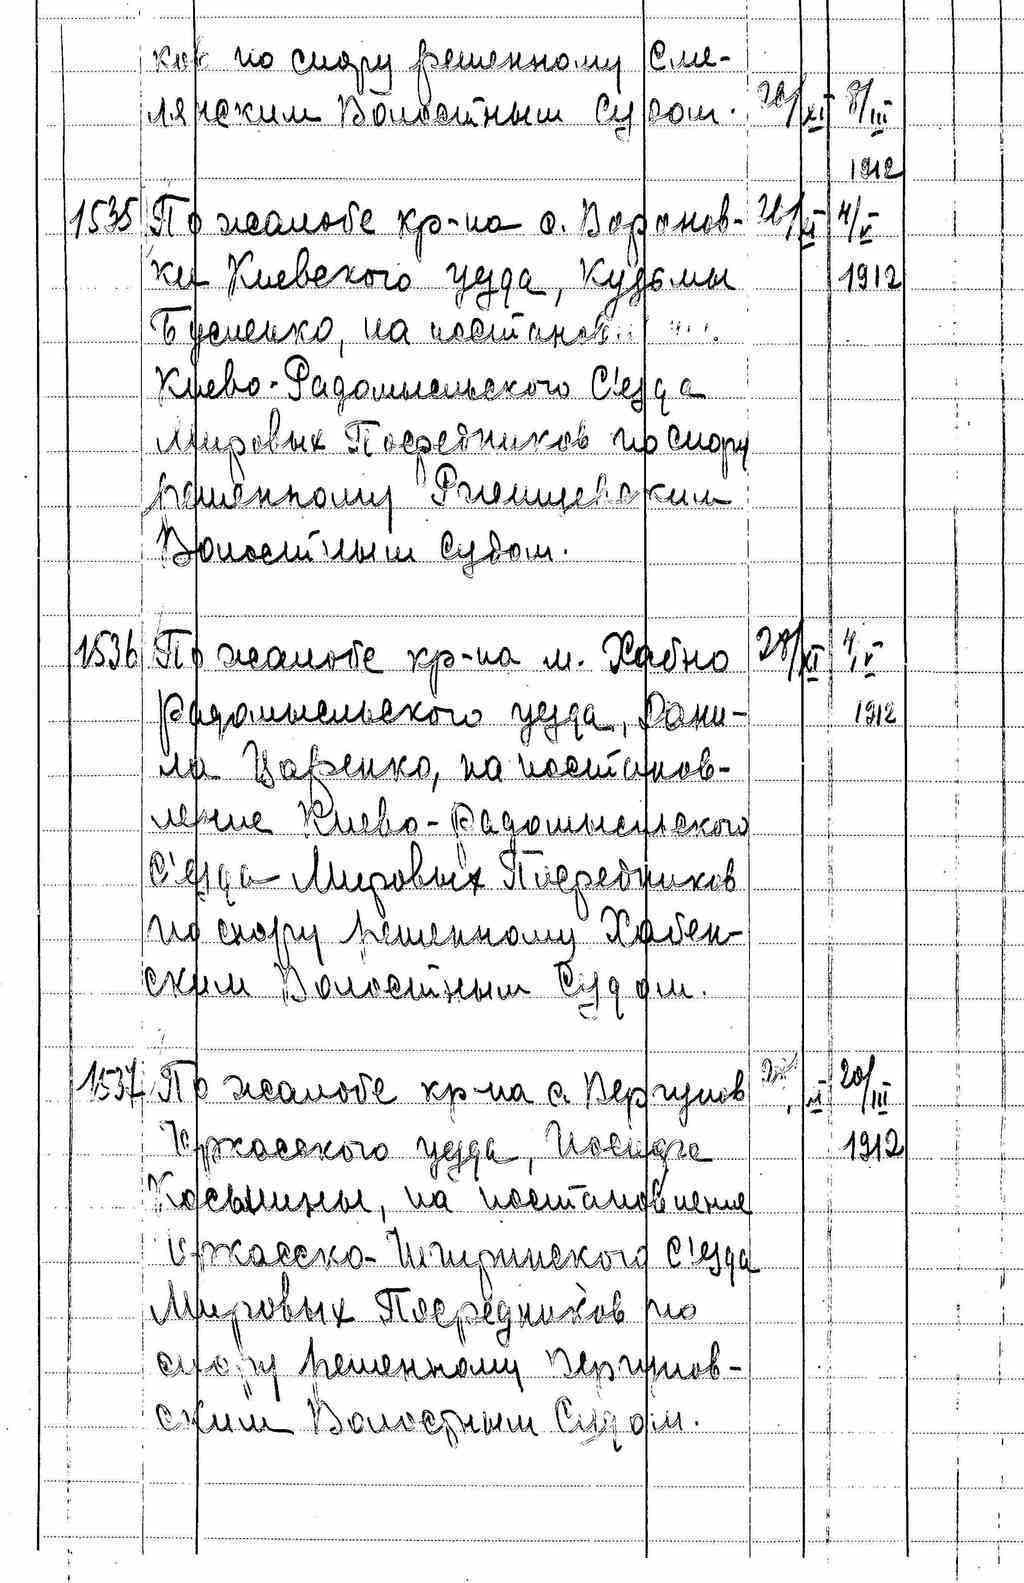 ков по спору решенному Сме-
лянским Волостным Судом. 26/XI 8/III
1912
1535 По жалобе кр-на с. Воронов- 28/XI 4/V
ки Киевского уезда, Кузьмы 1912
Бусленко, на постанов...
Киево-Радомысльского С'езда
Мировых Посредников по спору
решенному Ржищевским
Волостным Судом.
1536 По жалобе кр-на м. Хабно 28/XI 4/V
Радомысльского уезда, Дани- 1912
ла Царенко, на постанов-
ление Киево-Радомысльского
С'езда Мировых Посредников
по спору решенному Хабен-
ским Волостным Судом.
1537 По жалобе кр-на с. Вергунов XI 20/III
Черкасского уезда, Иосифа 1912
Косынины, на постановление
Черкасско-Чигиринского С'езда
Мировых Посредников по
спору решенному Вергунов-
ским Волостным Судом.